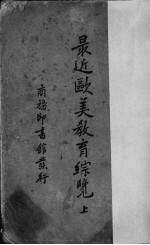 最近歐美敎育綜覽 上
商務印書館發行